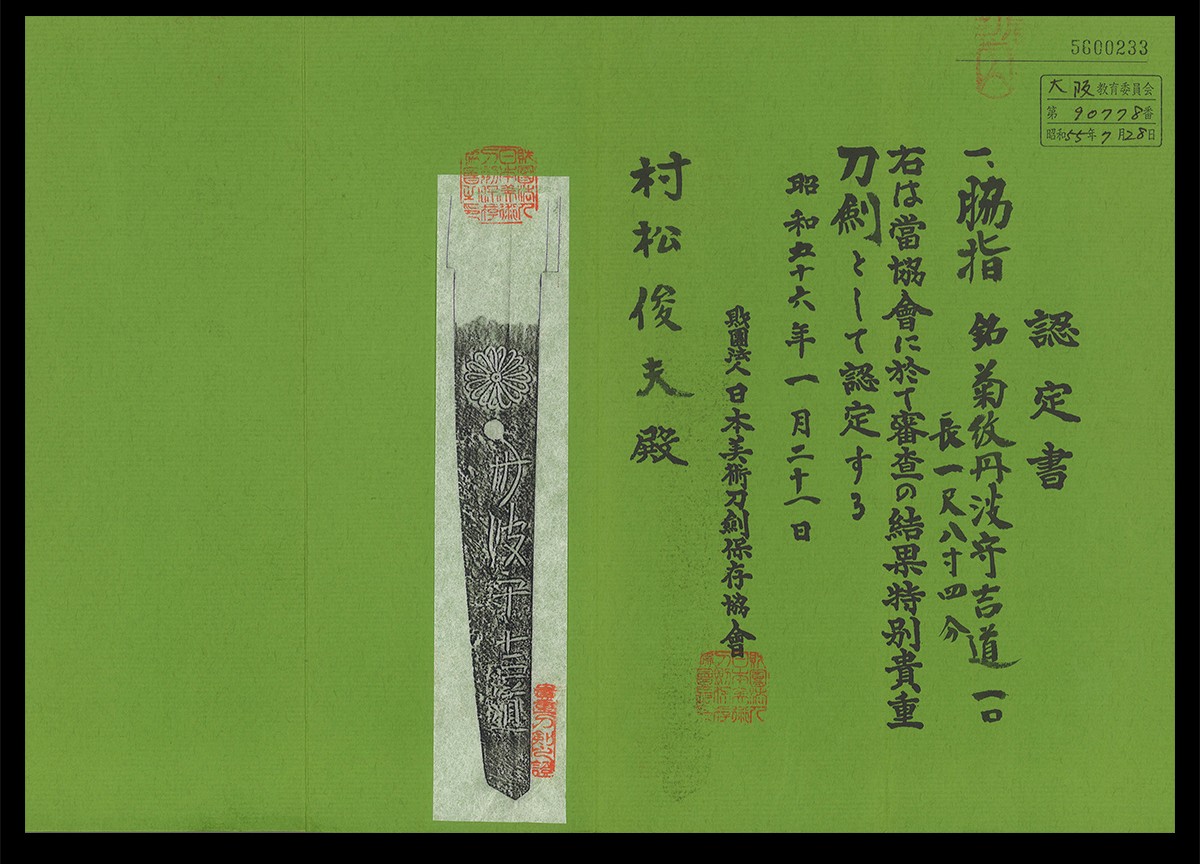 5600233
大阪教育委員会
第90778番
昭和55年7月28日
認定書
一、脇指 銘菊紋丹波守吉道 一口
長一尺八寸四分
右は當協會に於て審査の結果特別貴重
刀劍として認定する
昭和五十六年一月二十一日
財團法人日本美術刀劍保存協會
村松俊夫殿
丹波守吉道